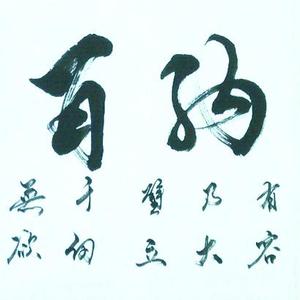 納百
有容
乃大
壁立
千仞
無欲